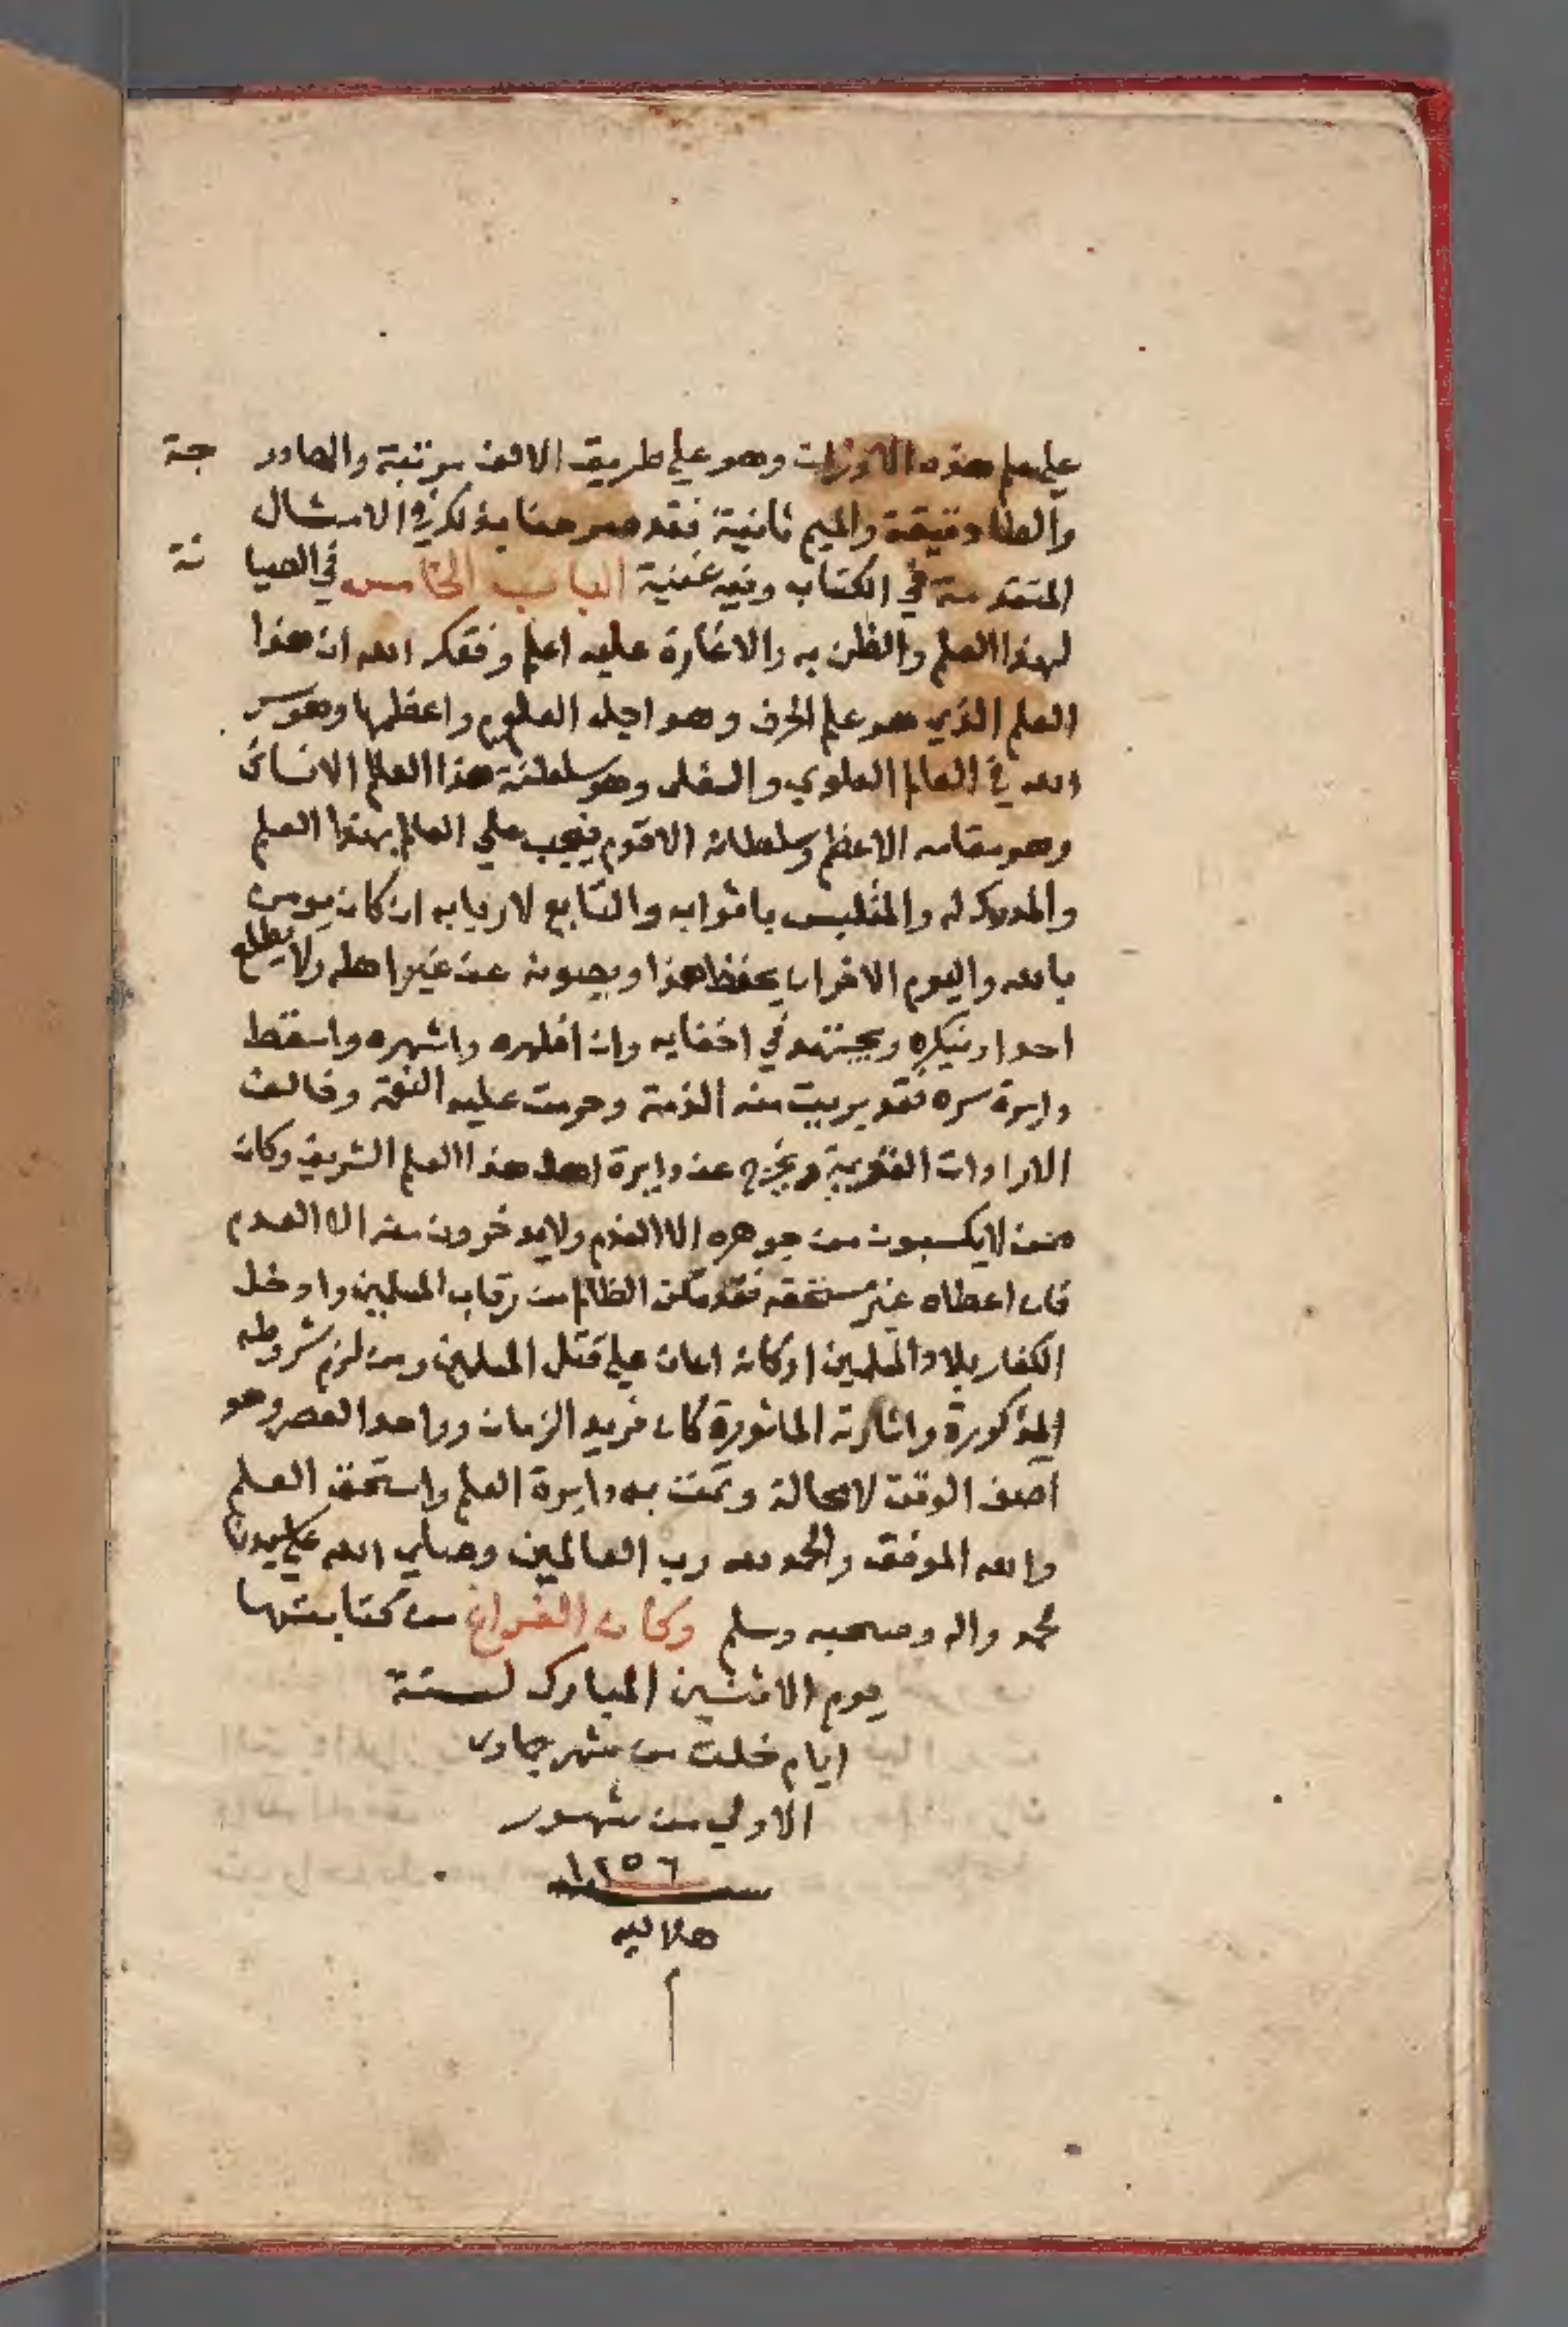 علي علم هذه الاوزان وهو علي طريق الالف مرتبة والهاء در جة
والطاء دقيقة والميم ثانية فقد صرحنا بذلك في الامثال
المتقدمة في الكتاب وفيه غنية الباب الخامس في الصيا نة
لهذا العلم والظن به والاغارة عليه اعلم وفقك الله ان هذا
العلم الذي هو علم الحرف وهو اجل العلوم واعظمها وهو سر
الله في العالم العلوي والسفلى وهو سلطنة هذا العالم الانسانى
وهو مقامه الاعظم وسلطانه الاقوم فيجب علي العالم بهذا العلم
والمدرك له والمتلبس باثوابه والتابع لاربابه ان كان يومن
بالله واليوم الاخر ان يحفظ هذا ويصونه عن غير اهله ولا يطلع
احدا وينكره ويجتهد في اخفايه وان اظهره واشهره واسقط
دايرة سره فقد بريت منه الذمة وحرمت عليه النعمة وخالف
الارادات القديمة ويخرج عن دايرة اهل هذا العلم الشريف وكان
ممن لا يكسبون من جوهره الا الندم ولا يدخرون منه الا العدم
فان اعطاه غير مستحقه فقد مكن الظالم من رقاب المسلمين وادخل
الكفار بلاد المسلمين او كانه اعان علي قتل المسلمين ومن لزم شروطه
المذكورة واشارته الماثورة كان فريد الزمان وواحد العصر وهو
اصف الوقت لا محالة وتمت به دايرة العلم واستحق العلم
والله الموفق والحمد لله رب العالمين وصلي الله علي سيدنا
محمد واله وصحبه وسلم وكان الفراغ من كتابتها
يوم الاثنين المبارك لستة
ايام خلت من شهر جمادى
الاولي من شهور
سنة ١٢٥٦
هلاليه
م